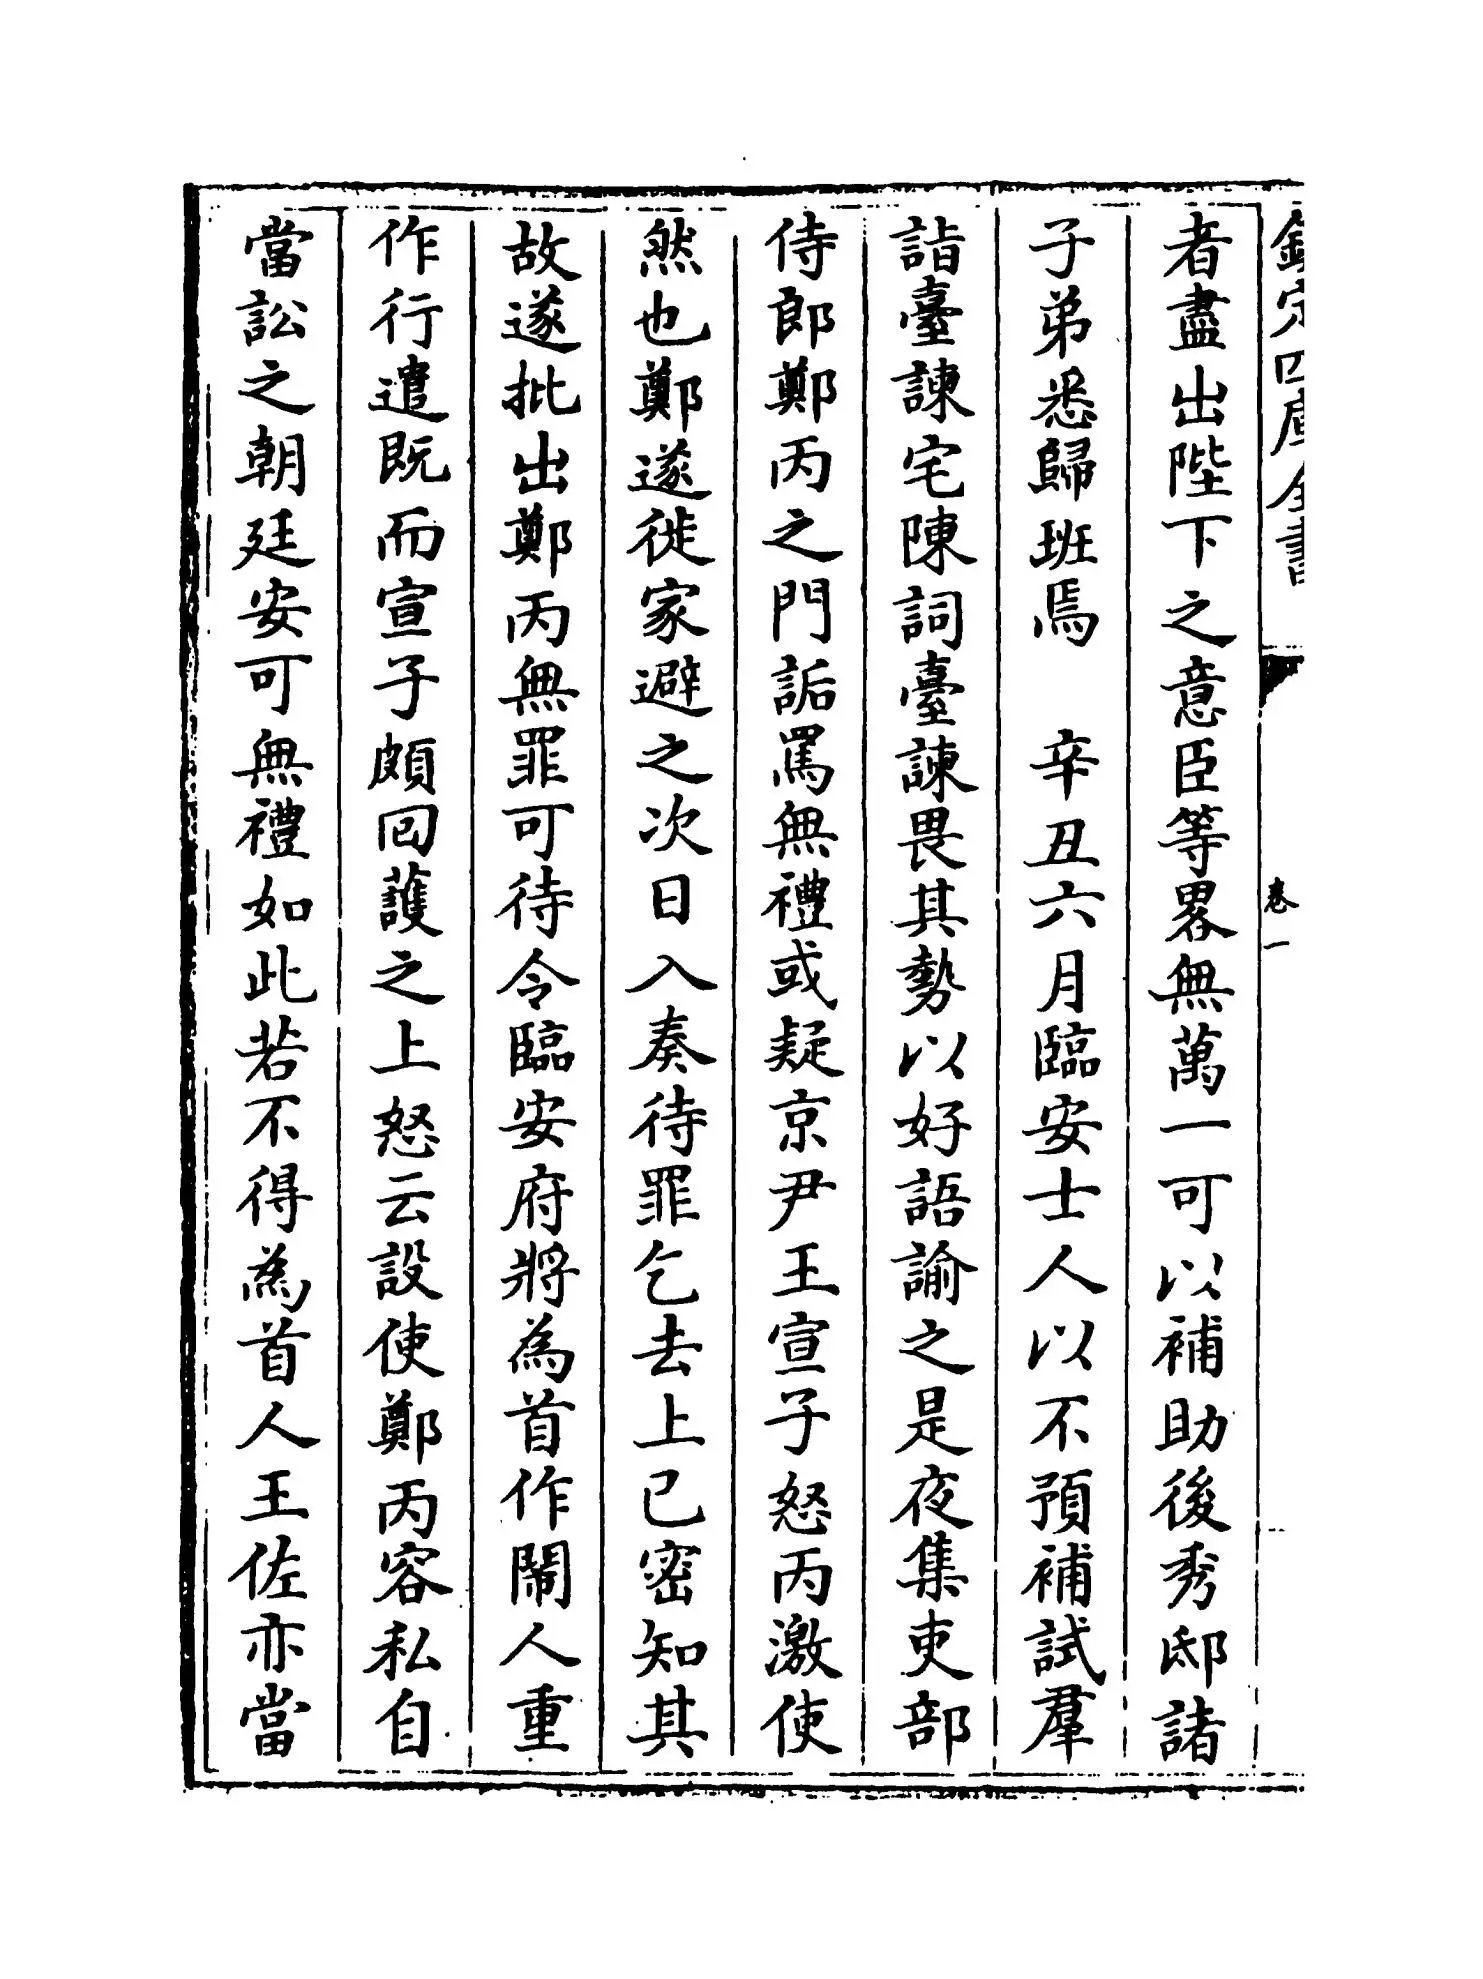 欽定四庫全書
卷一
者盡出陛下之意臣等畧無萬一可以補助後秀邸諸
子弟悉歸班焉　辛丑六月臨安士人以不預補試羣
詣臺諫宅陳詞臺諫畏其勢以好語諭之是夜集吏部
侍郎鄭丙之門詬罵無禮或疑京尹王宣子怒丙激使
然也鄭遂徙家避之次日入奏待罪乞去上已密知其
故遂批出鄭丙無罪可待令臨安府將為首作鬧人重
作行遣既而宣子頗回護之上怒云設使鄭丙容私自
當訟之朝廷安可無禮如此若不得為首人王佐亦當